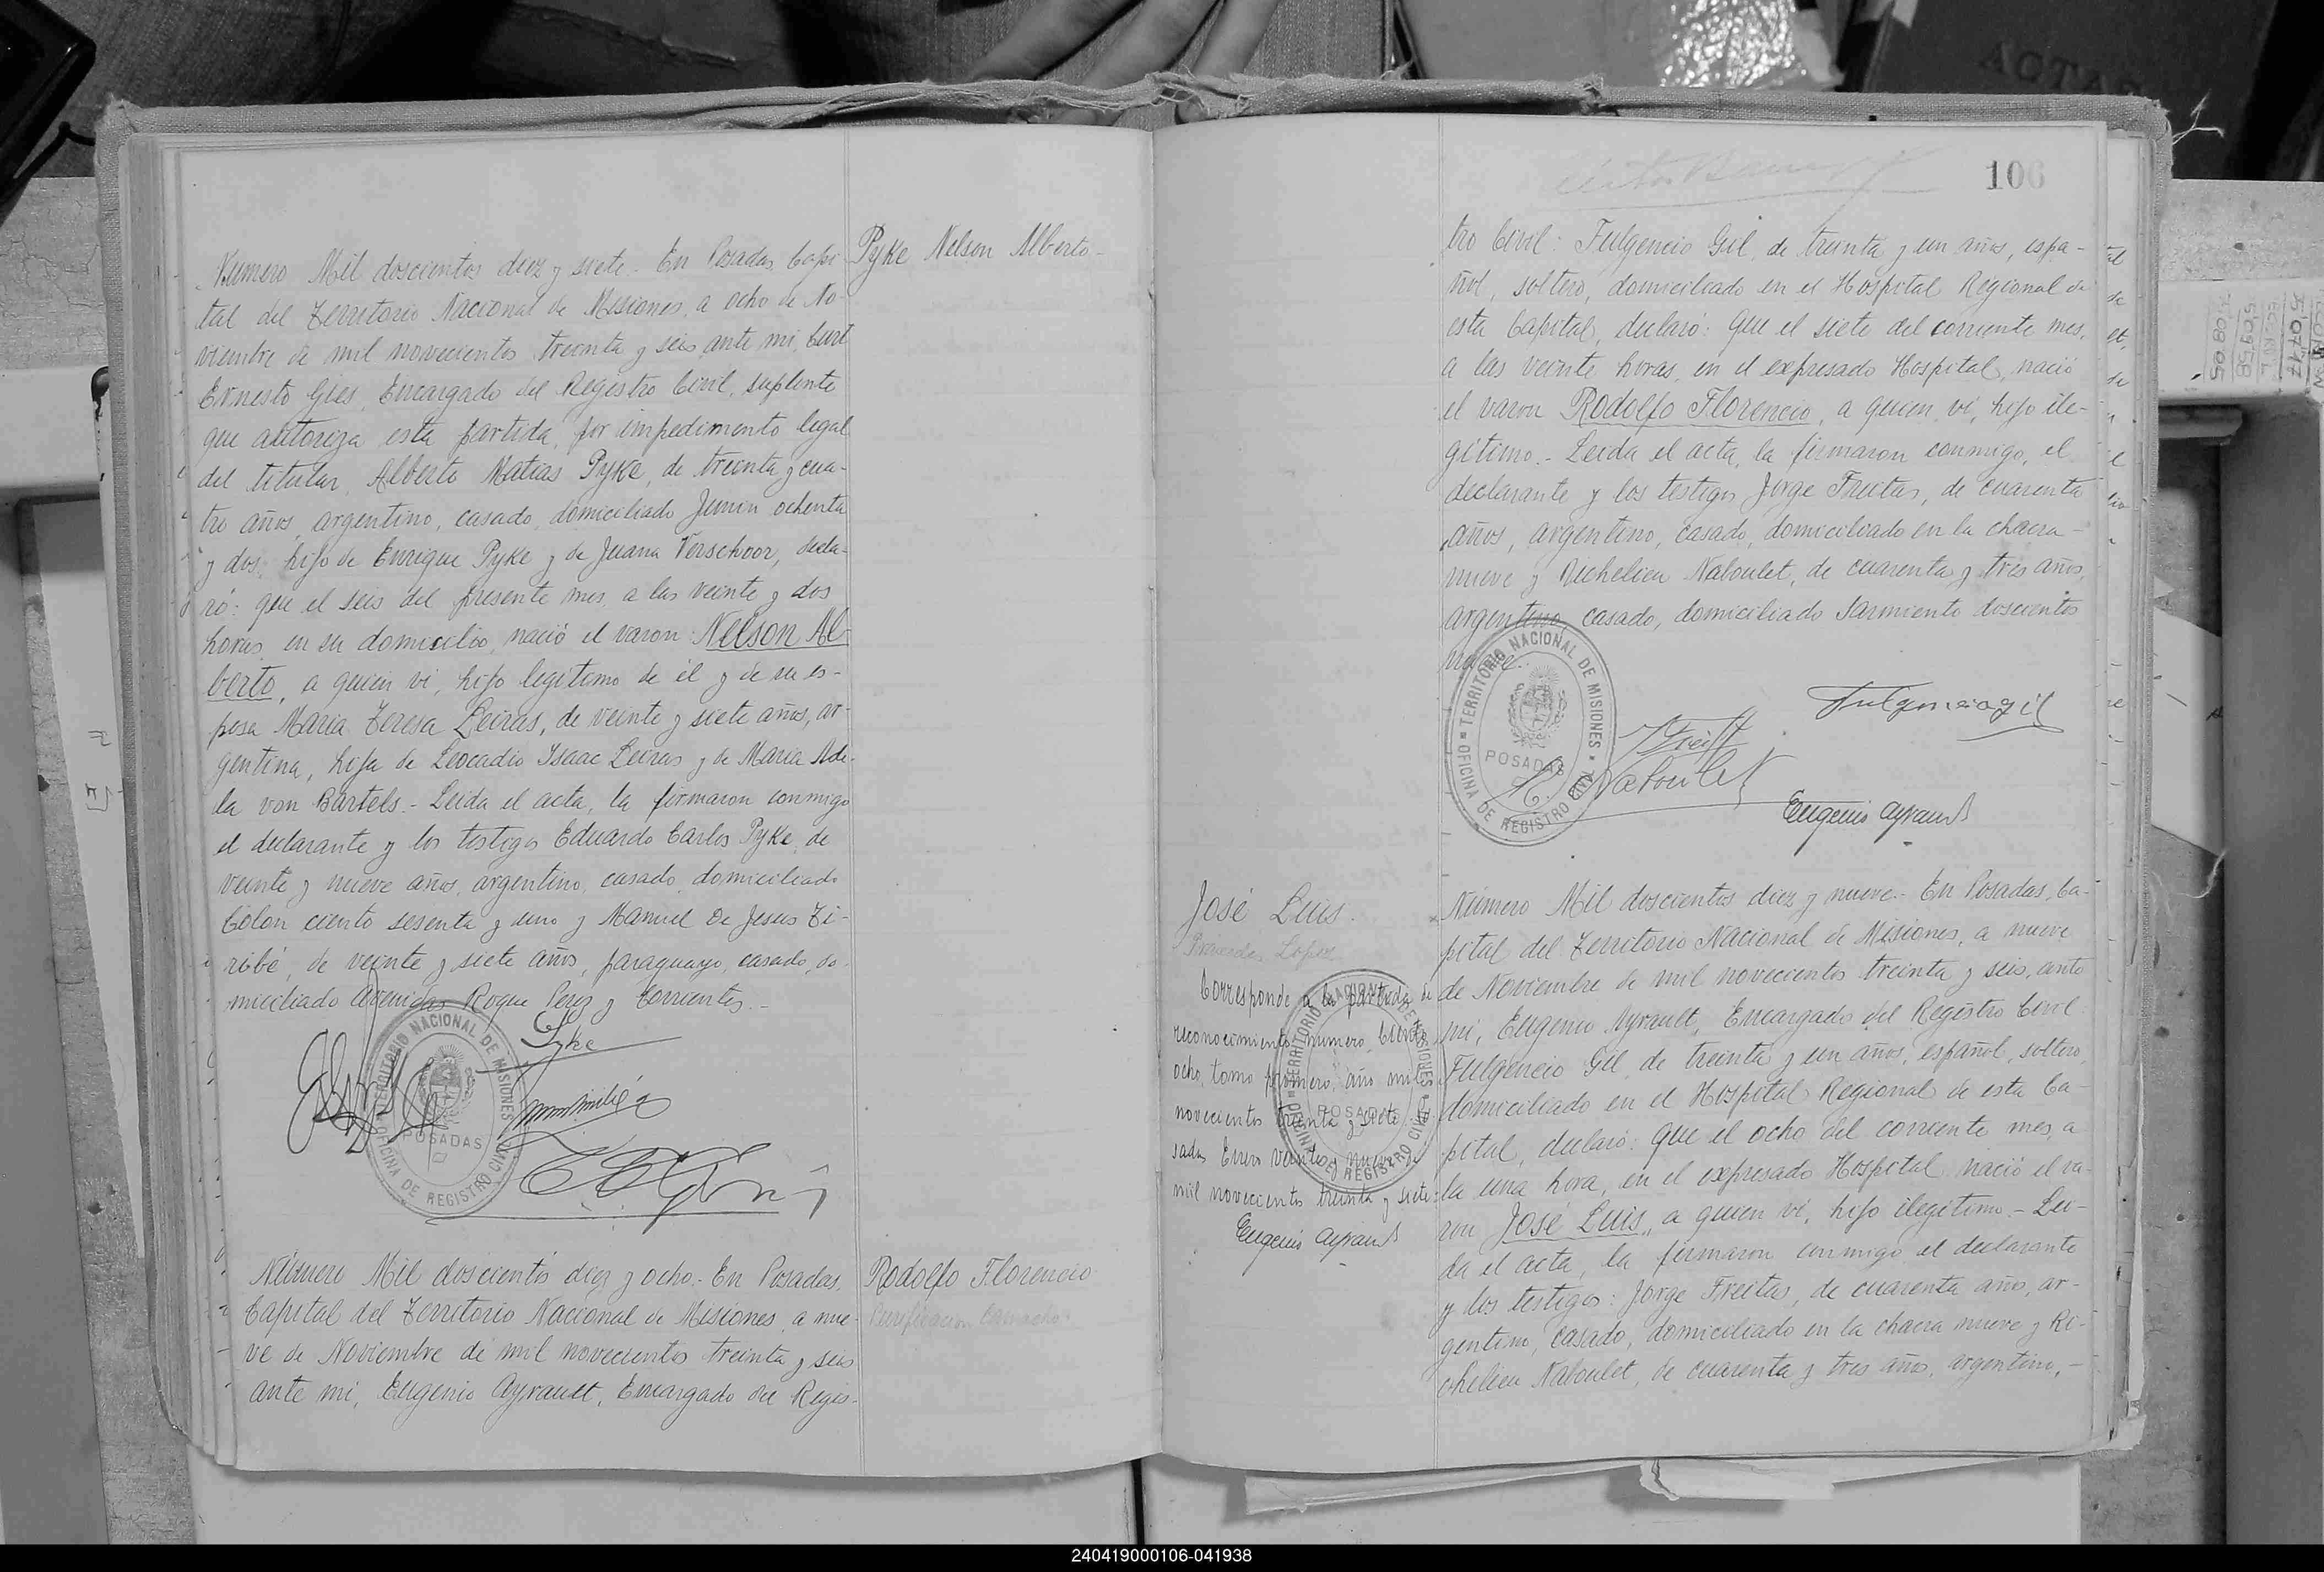 Pyke Nelson Alberto-
Número Mil doscientos diez y siete.- En Posadas, Capi
tal del Territorio Nacional de Misiones, a ocho de No-
viembre de mil novecientos treinta y seis, ante mi, Curt
Ernesto Gies, Encargado del Registro Civil, suplente
que autoriza esta partida, por impedimento legal
del titular, Alberto Matias Pyke, de treinta y cua-
tro años, argentino, casado, domiciliado Junin ochenta
y dos, hijo de Enrique Pyke y de Juana Verschoor, decla-
ró: que el seis del presente mes, a las veinte y dos
horas, en su domicilio, nació el varon Nelson Al-
berto, a quien vi, hijo legitimo de él y de su es-
posa Maria Teresa Leiras, de veinte y siete años, ar-
gentina, hija de Leocadio Isaac Leiras y de Maria Ade-
la von Bartels.- Leida el acta, la firmaron conmigo
el declarante y los testigos Eduardo Carlos Pyke, de
veinte y nueve años, argentino, casado, domiciliado
Colon ciento sesenta y uno y Manuel De Jesus Ti-
ribé, de veinte y siete años, paraguayo, casado, do-
miciliado Avenidas Roque Perez y Corrientes.-
Pyke
TERRITORIO NACIONAL DE MISIONES
POSADAS
OFICINA DE REGISTRO CIVIL
Rodolfo Florencio
Purificacion Camacho
Número Mil doscientos diez y ocho.- En Posadas,
Capital del Territorio Nacional de Misiones, a nue-
ve de Noviembre de mil novecientos treinta y seis
ante mi, Eugenio Ayrault, Encargado del Regis-
106
tro Civil: Fulgencio Gil, de treinta y un años, espa-
ñol, soltero, domiciliado en el Hospital Regional de
esta Capital, declaró: que el siete del corriente mes,
a las veinte horas, en el expresado Hospital, nació
el varon Rodolfo Florencio, a quien vi, hijo ile-
gitimo.- Leida el acta, la firmaron conmigo, el
declarante y los testigos Jorge Freitas, de cuarenta
años, argentino, casado, domiciliado en la chacra-
nueve y Richelieu Naboulet, de cuarenta y tres años,
argentino, casado, domiciliado Sarmiento doscientos
nueve.-
Fulgenciogil
TERRITORIO NACIONAL DE MISIONES
POSADAS
OFICINA DE REGISTRO CIVIL
R. Naboulet
Eugenio Ayrault
José Luis.
Lopez
Corresponde a la partida de
reconocimiento numero, treinta
ocho, tomo primero, año mil
novecientos treinta y siete
sadas Enero veinte y nueve de
mil novecientos treinta y siete.
Eugenio Ayrault
TERRITORIO NACIONAL DE MISIONES
POSADAS
OFICINA DE REGISTRO CIVIL
Número Mil doscientos diez y nueve.- En Posadas, Ca-
pital del Territorio Nacional de Misiones, a nueve
de Noviembre de mil novecientos treinta y seis, ante
mi, Eugenio Ayrault, Encargado del Registro Civil
Fulgencio Gil, de treinta y un años, español, soltero,
domiciliado en el Hospital Regional de esta Ca-
pital, declaró: que el ocho del corriente mes, a
la una hora, en el expresado Hospital nació el va-
ron José Luis, a quien vi, hijo ilegitimo.- Lei-
da el acta, la firmaron conmigo el declarante
y los testigos: Jorge Freitas, de cuarenta año, ar-
gentino, casado, domiciliado en la chacra nueve y Ri-
chelieu Naboulet, de cuarenta y tres años, argentino,-
240419000106-041938